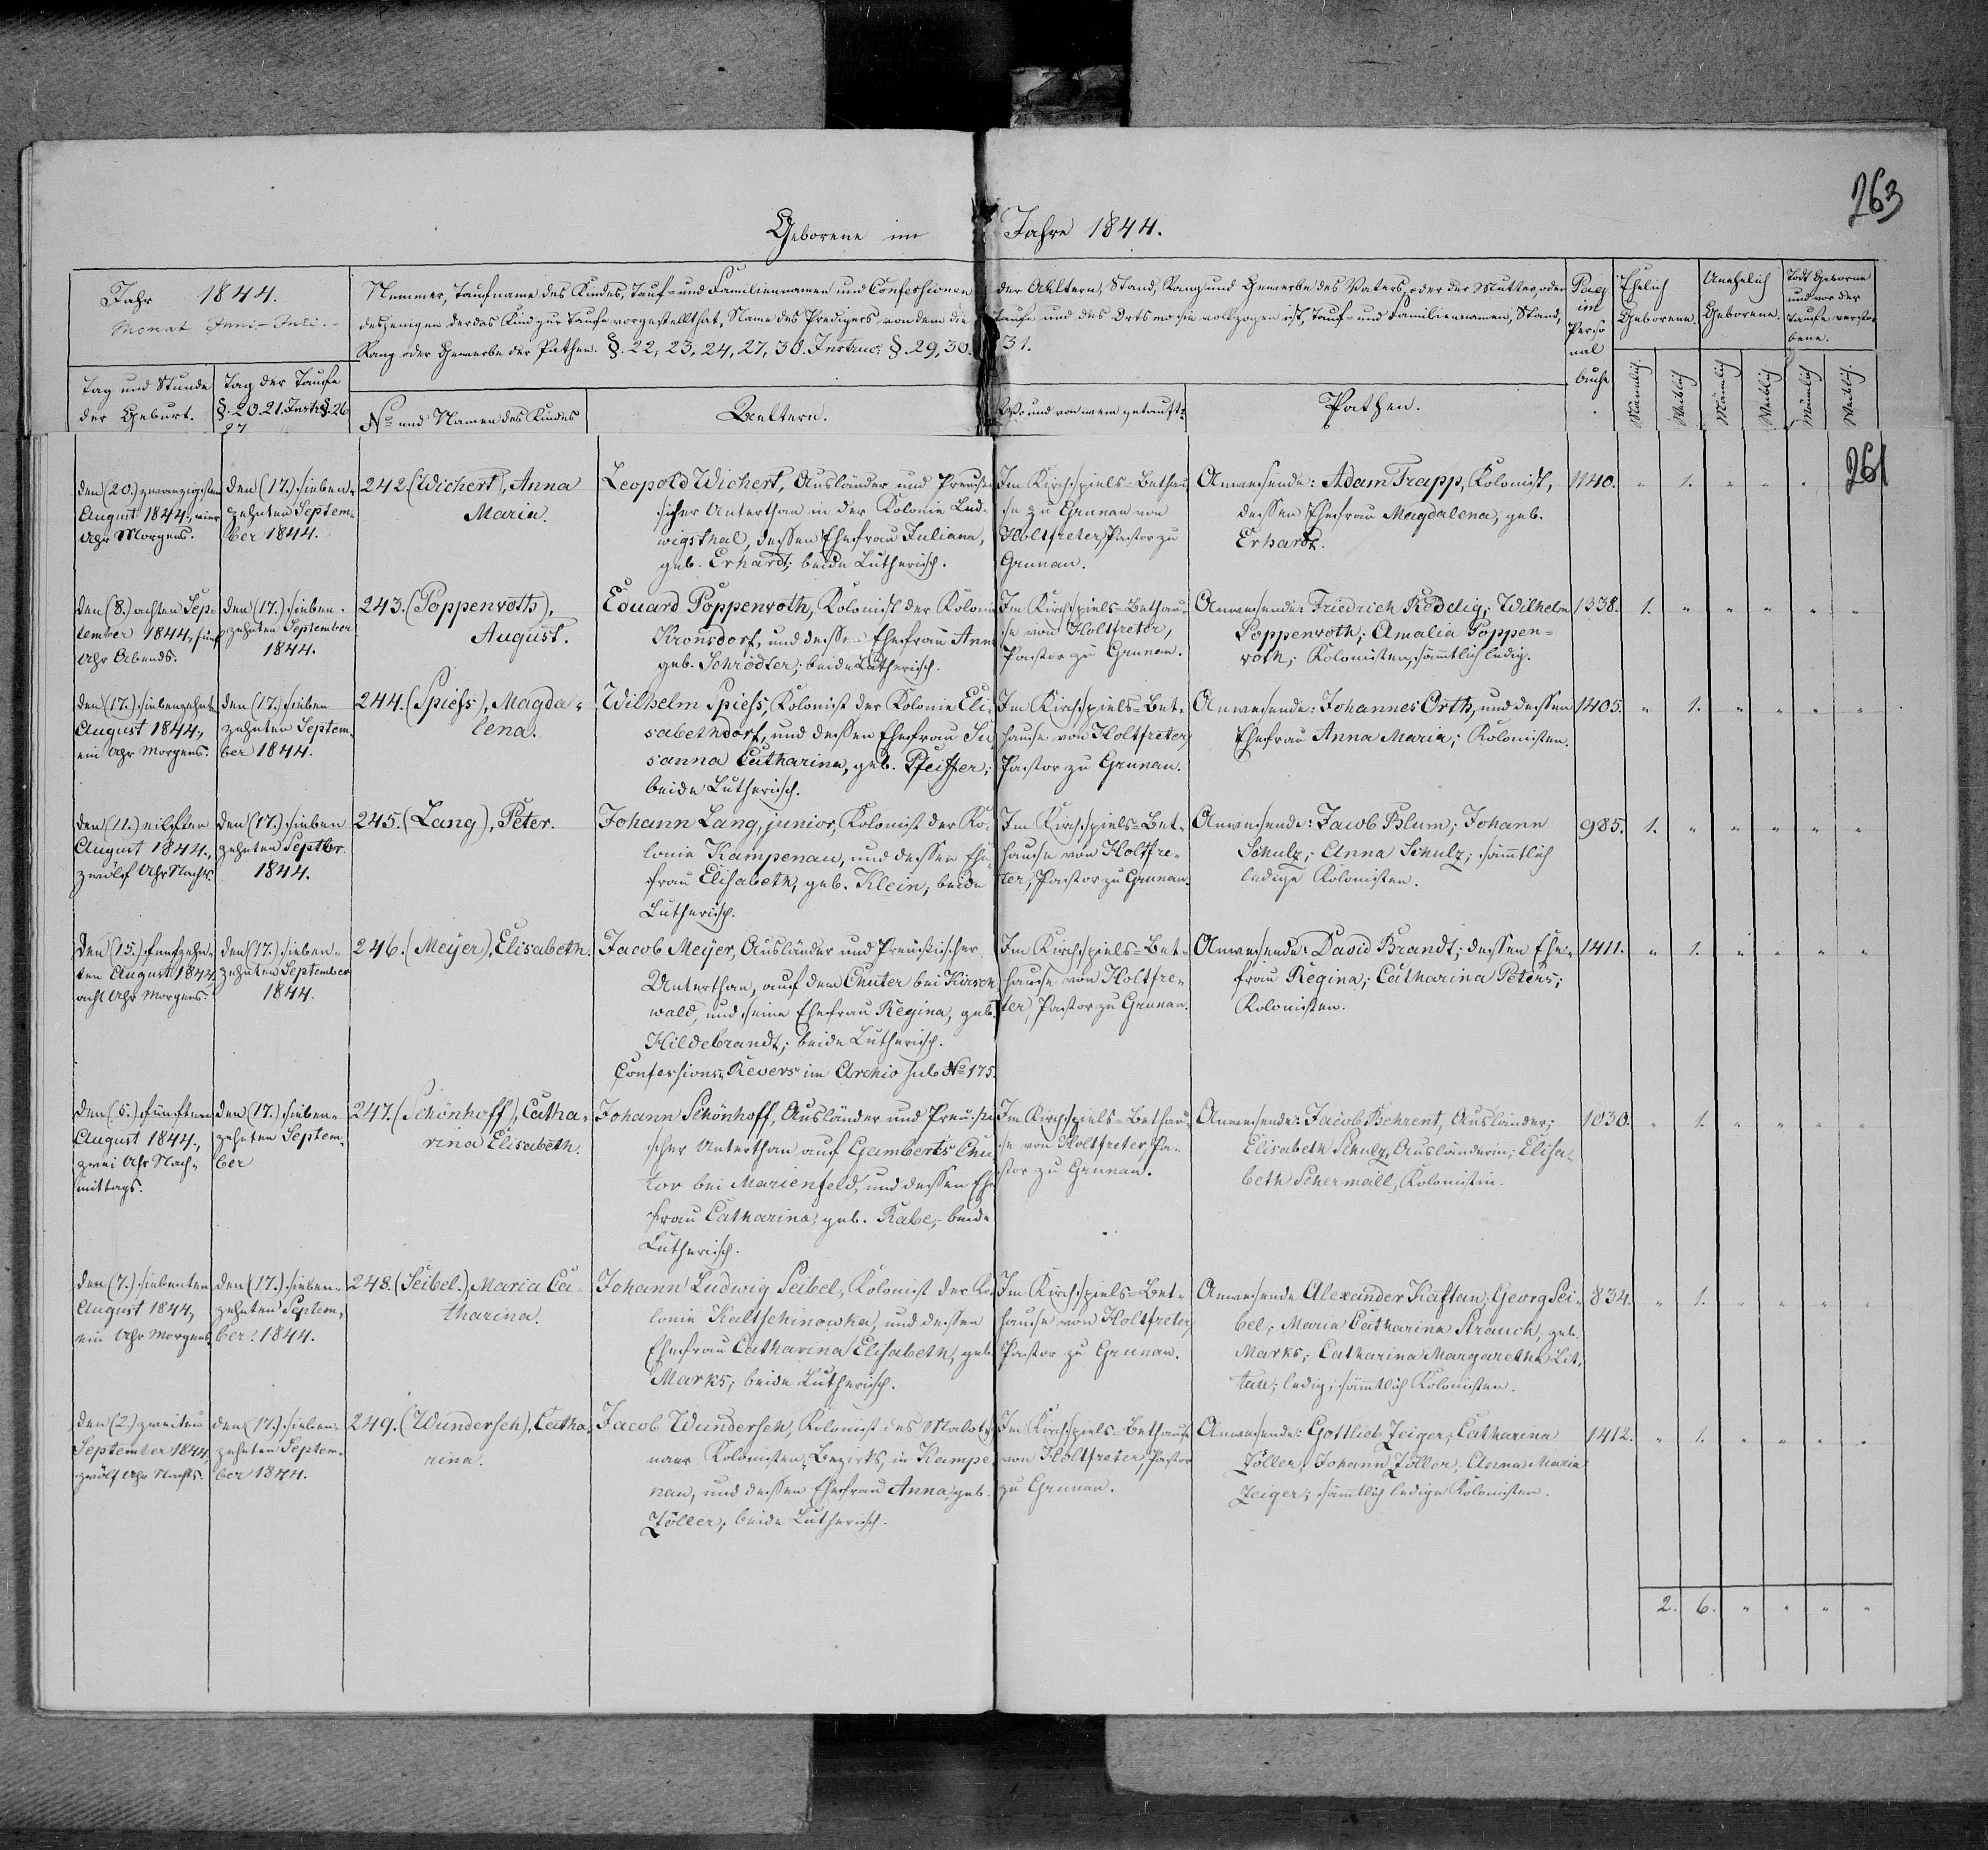 263
Geborene im Jahre 1844.
Jahr 1844.
Monat Juni-Juli.
Nummer, Taufname des Kindes, Tauf- und Familiennamen und Confessionen der Aeltern, Stand, Rang und Gewerbe des Vaters, oder der Mutter, oder
desjenigen, der das Kind zur Taufe vorgestellt hat, Name des Predigers, von dem die Taufe und des Orts wo sie vollzogen ist, Tauf- und Familiennamen, Stand,
Rang oder Gewerbe der Pathen. §. 22, 23, 24, 27, 30. Instruc: §. 29, 30. 31.
Pag.
im
Perso
nal
buche
Ehelich
Geborene.
Unehelich
Geborene.
Todt Geborene
und vor der
Taufe verstor
bene.
Tag und Stunde
der Geburt.
Tag der Taufe
§. 20. 21. Instr. §. 26
27
No und Namen des Kindes
Aeltern.
Wo und von wem getauft.
Pathen.
Männlich
Weiblich
Männlich
Weiblich
Männlich
Weiblich.
261
den (20.) zwanzigsten
August 1844., vier
Uhr Morgens.
den (17.) sieben-
zehnten Septem-
ber 1844.
242. (Wichert), Anna
Maria.
Leopold Wichert, Ausländer und Preussi-
scher Unterthan in der Kolonie Lud-
wigsthal, dessen Ehefrau Juliana,
geb. Erhardt; beide Lutherisch.
Im Kirchspiels-Bethau-
se zu Grunau von
Holtfreter, Pastor zu
Grunau.
Anwesende: Adam Trapp, Kolonist,
dessen Ehefrau Magdalena, geb.
Erhardt.
1140. " 1. " " "
den (8.) achten Sep-
tember 1844., fünf
Uhr Abends.
den (17.) sieben-
zehnten September
1844.
243. (Poppenroth),
August.
Eduard Poppenroth, Kolonist der Kolonie
Kronsdorf, und dessen Ehefrau Anna
geb. Schrödter; beide Lutherisch.
Im Kirchspiels-Bethau-
se von Holtfreter,
Pastor zu Grunau.
Anwesende: Friedrich Reddig; Wilhelm
Poppenroth; Amalia Poppen-
roth; Kolonisten, sämtlich ledig.
1338. 1. " " " " "
den (17.) siebenzehnten
August 1844.,
ein Uhr Morgens.
den (17.) sieben
zehnten Septem-
ber 1844.
244. (Spiess), Magda-
lena.
Wilhelm Spiess, Kolonist der Kolonie Eli-
sabethdorf, und dessen Ehefrau Su-
sanna Catharina, geb. Pfeiffer;
beide Lutherisch.
Im Kirchspiels-Bet-
hause von Holtfreter,
Pastor zu Grunau.
Anwesende: Johannes Orth, und dessen
Ehefrau Anna Maria; Kolonisten.
1405. " 1. " " " "
den (11.) eilften
August 1844.,
zwölf Uhr Nachts.
den (17.) sieben
zehnten Septbr.
1844.
245. (Lang), Peter.
Johann Lang, junior, Kolonist der Ko-
lonie Kampenau, und dessen Ehe-
frau Elisabeth, geb. Klein; beide
Lutherisch.
Im Kirchspiels-Bet-
hause von Holtfre-
ter, Pastor zu Grunau.
Anwesende: Jacob Blum; Johann
Schulz; Anna Schulz; sämtlich
ledige Kolonisten.
985. 1. " " " " "
den (15.) fünfzehn-
ten August 1844.,
acht Uhr Morgens.
den (17.) sieben-
zehnten September
1844.
246. (Meyer), Elisabeth.
Jacob Meyer, Ausländer und Preußischer
Unterthan, auf dem Chutor bei Kirsch
wald, und seine Ehefrau Regina, geb.
Hildebrandt; beide Lutherisch.
Confessions-Revers im Archiv sub No 175.
Im Kirchspiels-Bet-
hause von Holtfre-
ter, Pastor zu Grunau.
Anwesende: David Brandt; dessen Ehe-
frau Regina; Catharina Peters;
Kolonisten.
1411. " 1. " " " "
den (5.) fünften
August 1844.,
zwei Uhr Nach-
mittags.
den (17.) sieben-
zehnten Septem-
ber
247. (Schönhoff), Catha-
rina Elisabeth.
Johann Schönhoff, Ausländer und Preussi-
scher Unterthan auf Gamberts Chu
tor bei Marienfeld, und dessen Ehe
frau Catharina, geb. Rabe, beide
Lutherisch.
Im Kirchspiels-Bethau-
se von Holtfreter, Pa-
stor zu Grunau.
Anwesende: Jacob Behrent, Ausländer;
Elisabeth Schulz, Ausländerin; Elisa-
beth Schermall, Kolonistin.
1030. " 1. " " " "
den (7.) siebenten
August 1844,
ein Uhr Morgens.
den (17.) sieben-
zehnten Septem-
ber 1844.
248. (Seibel.), Maria Ca-
tharina.
Johann Ludwig Seibel, Kolonist der Ko-
lonie Kaltschinowka, und dessen
Ehefrau Catharina Elisabeth, geb.
Marks; beide Lutherisch.
Im Kirchspiels-Bet-
hause von Holtfreter,
Pastor zu Grunau.
Anwesende Alexander Kaftan; Georg Sei-
bel; Maria Catharina Strauch, geb.
Marks; Catharina Margaretha Lit-
tau; ledig; sämtlich Kolonisten.
834. " 1. " " " "
den (2.) zweiten
September 1844,
zwölf Uhr Nachts.
den (17.) sieben-
zehnten Septem-
ber 1844.
249. (Wundersch), Catha-
rina.
Jacob Wundersch, Kolonist des
Kolonisten-Bezirks, in Kampe-
nau, und dessen Ehefrau Anna, geb.
Zöller; beide Lutherisch.
Im Kirchspiels-Bethause
von Holtfreter, Pastor
zu Grunau.
Anwesende: Gottlieb Zeiger; Catharina
Zöller; Johann Zöller; Anna Maria
Zeiger; sämtlich ledige Kolonisten.
1412. " 1. " " " "
2. 6. " " " "